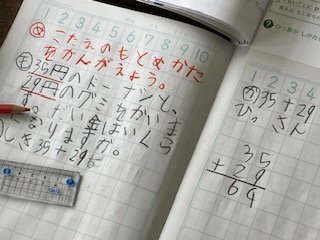 1 2 3 4 5 6 7 8 9 10
め こたえのもとめかた
をかんがえよう。
も 35円のドーナツと、
29円のグミをかいま
す。だい金はいくら
になりますか。
しき35+29
1 2 3 4
か 35+29
ひっさん
35
+29
64